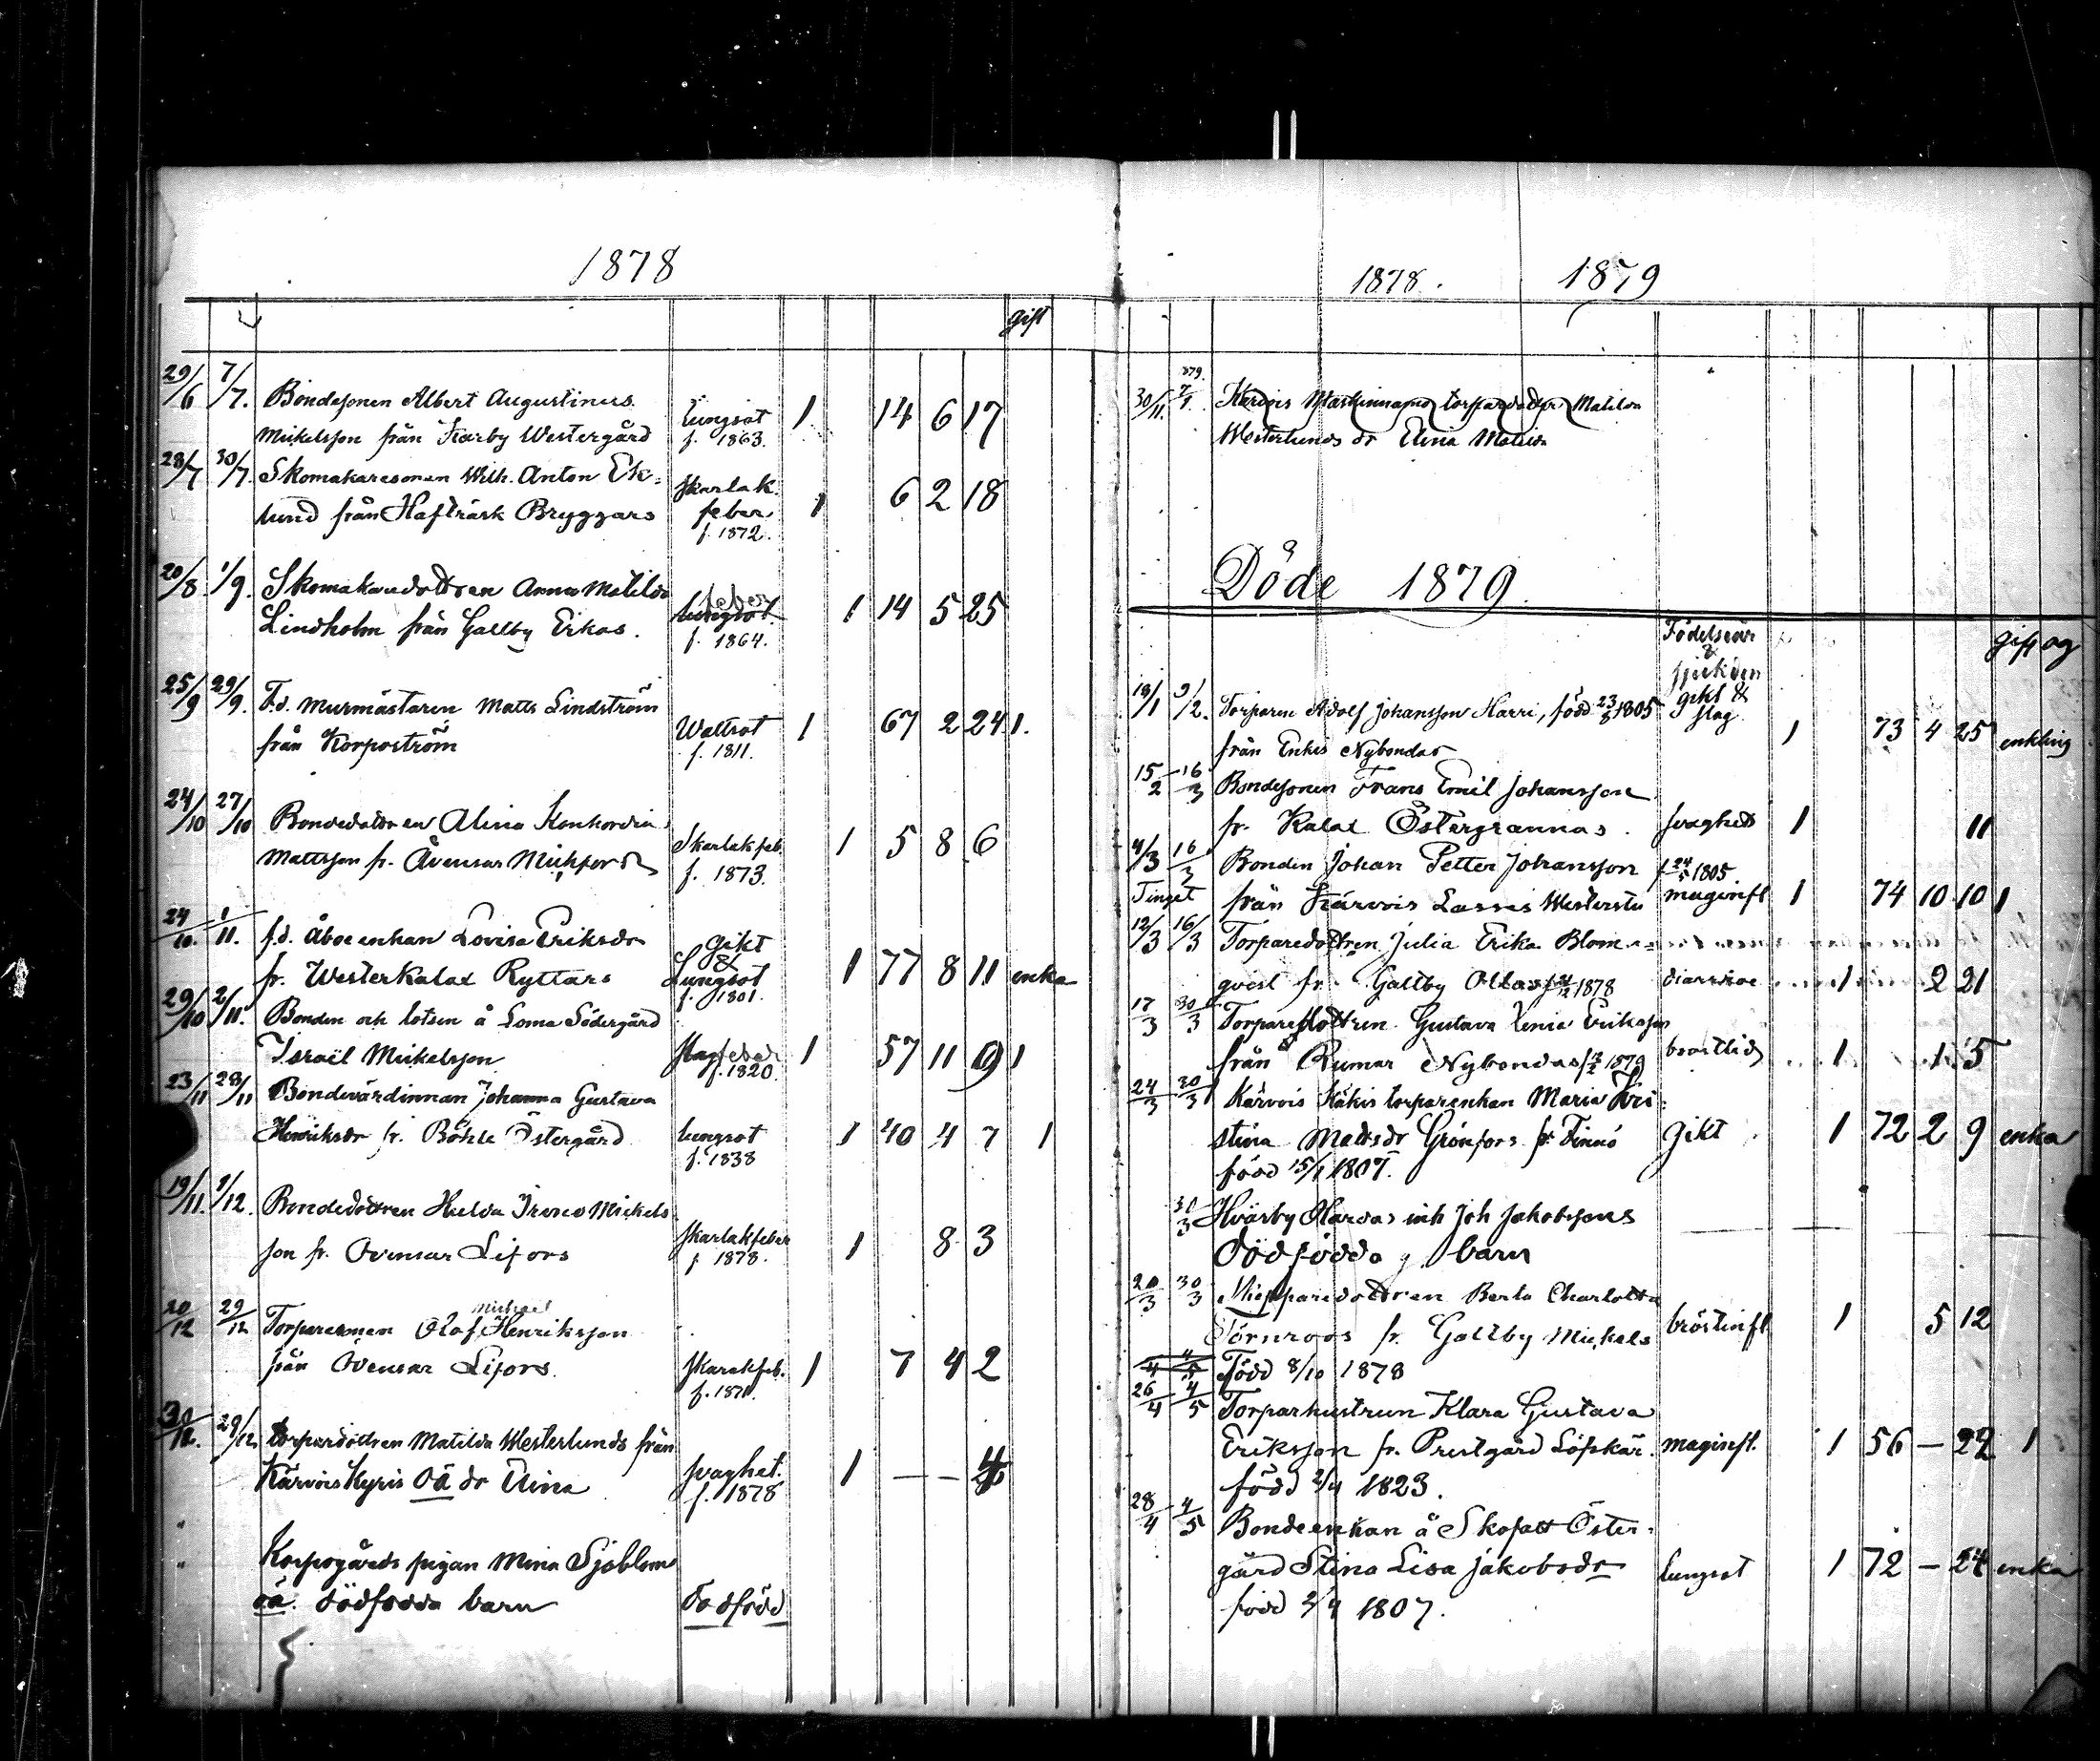 1878
gift
29/6 7/7. Bondesonen Albert Augustinus
Mickelsson från Karby Westergård lungsot f. 1863. 1 14 6 17
28/7 30/7. Skomakaresonen Wilh. Anton Ek=
lund från Hafträsk Bryggars skarlak. feber f. 1872. 1 6 2 18
20/8 1/9. Skomakaredottren Anna Matilda
Lindholm från Gallby Erkas. lungsot. feber f. 1864. 1 14 5 25
25/9 29/9. F.d. murmästaren Matts Lindström
från Korpoström Wattsot f. 1811. 1 67 2 24 1.
24/10 27/10 Bondedottren Alina Konkordia
Mattsson fr. Åvensar Skarlakfeb. f. 1873. 1 5 8 6
24/10. 1/11. f.d. Åboenkan Lovisa Eriksdr
fr. Westerkalax Ryttars gikt & Lungsot f. 1801. 1 77 8 11 enka
29/10 2/11. Bonden och lotsen å Loma Södergård
Israël Mickelsson f. 1820. 1 57 11 9 1
23/11 28/11 Bondevärdinnan Johanna Gustava
Henriksdr fr. Böhle Östergård lungsot f. 1838 1 40 4 7 1
19/11. 1/12. Bondedottren Hulda Irene Mickels
son fr. Ovensar Lifors skarlakfeber f. 1878. 1 8 3
20/12 29/12 Torparesonen Olaf Michael Henriksson
från Ovensar Lifors. skarlakfeb. f. 1871. 1 7 4 2
29/12 torpardottren Matilda Westerlunds från
Kärvois Kyris oä dr Elina svaghet. f. 1878 1 — — 4
" Korpogårds pigan Mina Sjöblom
" oä. dödfödda barn Dödfödd
1878. 1879
30/11. 7/1. 879. Kärvois torparedottr Matilda
Westerlunds dr Elina Matilda
Döde 1879.
Födelseår & sjukdom gift og
19/1 9/2. Torparen Adolf Johansson Harri, född 23/8 1805 gikt & slag
från Enkis Nybondas 1 73 4 25 enkling
15/2 16/3 Bondesonen Frans Emil Johansson
fr. Kalax Östergrannas. svaghet 1 11
4/3 16/3 Bonden Johan Petter Johansson f. 24/4 1805
Tinget från Kärvois Lassis Westerstu maginfl 1 74 10 10 1
12/3 16/3 Torparedottren Julia Erika Blom=
qvist fr. Gallby Ollas f. 21/12 1878 diarrhoe 1 2 21
17/3 30/3 Torparedottren Gustava Xenia Eriksson
från Rumar Nybondas f. 12/2 1879 1 1 5
24/3 30/3 Kärvois Käkis torparenkan Maria Kri=
stina Matsdr Grönfors fr. Finnö gikt 1 72 2 9 enka
född 15/1 1807.
30/3 Hväsby Nardas inh Joh Jakobssons
Dödfödda barn
20/3 30/3 Skeppardottren Berta Charlotta
Törnroos fr. Gallby Mickels bröstinfl. 1 5 12
4/5 Född 8/10 1878
26/4 4/5 Torparhustrun Klara Gustava
Eriksson fr. Prestgård Löfskär. maginfl. 1 56 — 22 1
född 2/4 1823.
28/4 4/5 Bondeenkan å Skofatt Öster=
gård Stina Lisa Jakobsdr lungsot 1 72 — 24 enka
född 3/4 1807.